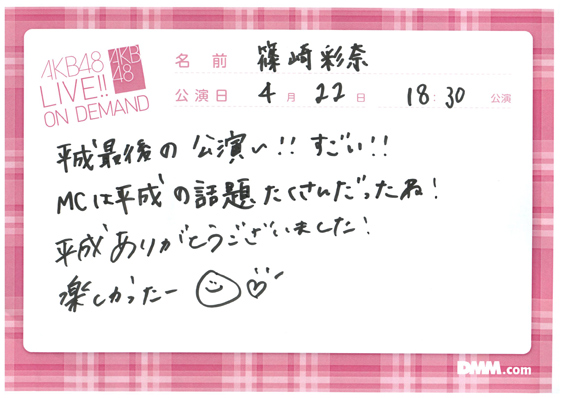 AKB48
LIVE!!
ON DEMAND
AKB
48
名前 篠崎彩奈
公演日 4月22日 18:30 公演
平成最後の公演い!! すごい!!
MCは平成の話題たくさんだったね!
平成ありがとうございました!
楽しかったー
DMM.com